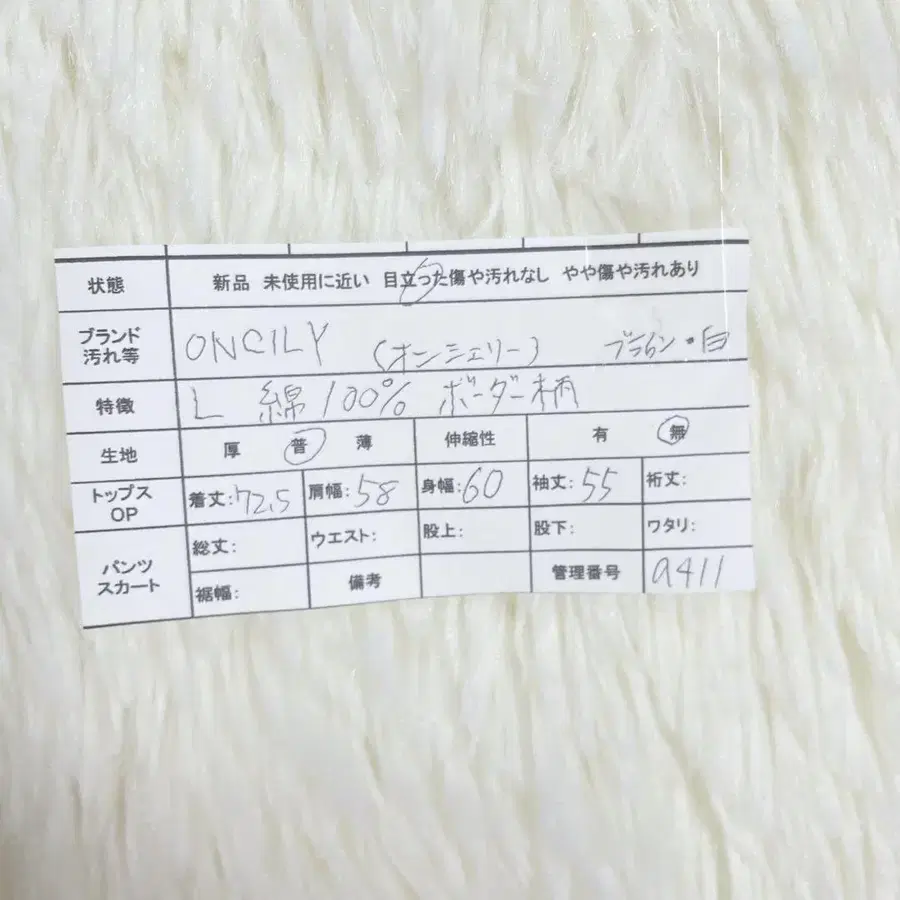 状態 新品 未使用に近い 目立った傷や汚れなし やや傷や汚れあり
ブランド 汚れ等 ONCILY (オンシェリー) ブラウン・白
特徴 L 綿 100% ボーダー柄
生地 厚 普 薄 伸縮性 有 無
トップス OP 着丈:72.5 肩幅:58 身幅:60 袖丈:55 裄丈:
パンツ スカート 総丈: ウエスト: 股上: 股下: ワタリ:
裾幅: 備考 管理番号 a411